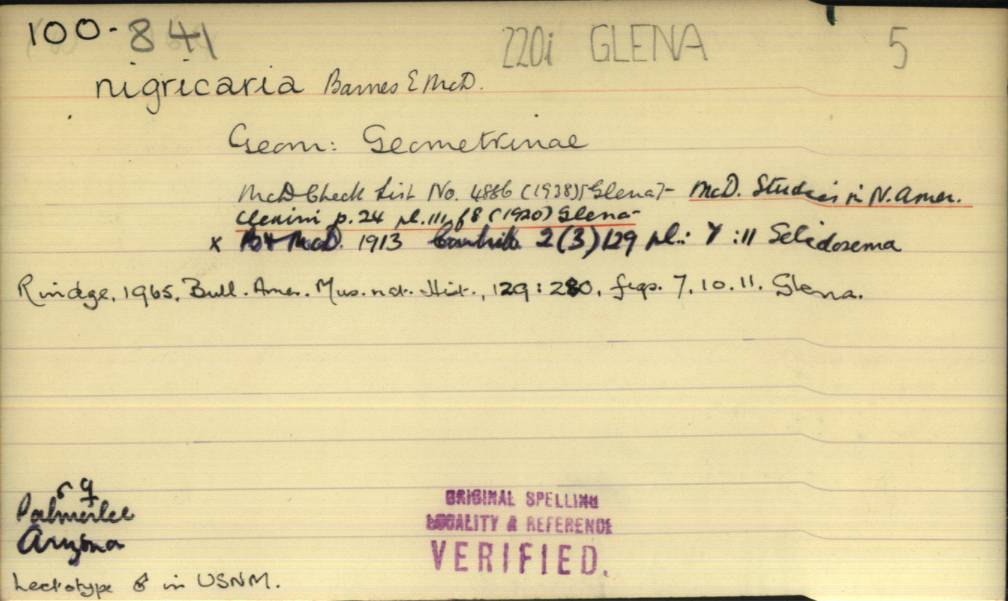 100-841 220i GLENA 5
nigricaria Barnes & McD.
Geom: Geometrinae
McD Check List No. 4886 (1938) [Glena] - McD. Studies in N. Amer.
Cleorini p. 24 pl. III, f 8 (1920) Glena-
x B & McD. 1913 Contrib 2(3) 129 pl.: Y :11 Selidosema
Rindge, 1965, Bull. Amer. Mus. nat. Hist., 129: 280, figs. 7, 10, 11. Glena.
♂ ♀
Palmerlee
Arizona
Lectotype ♂ in USNM.
ORIGINAL SPELLING
LOCALITY & REFERENCE
VERIFIED.